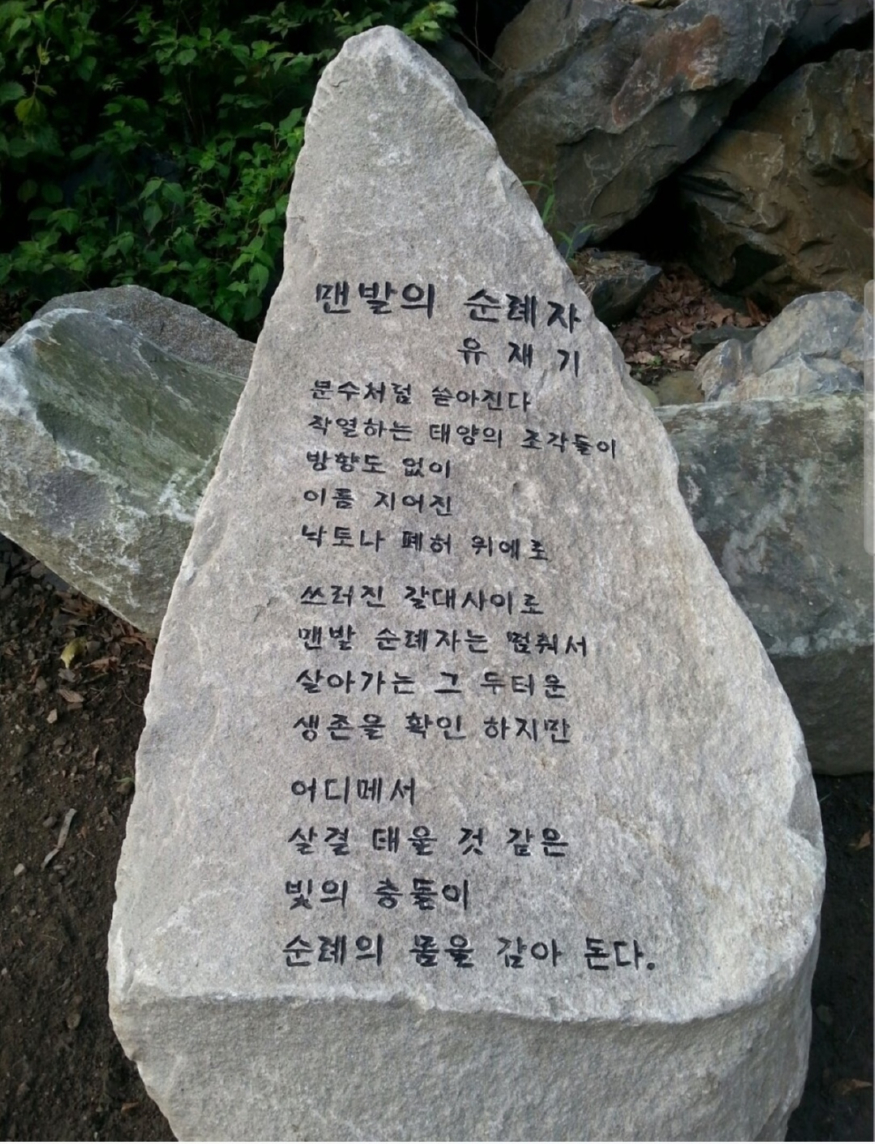 맨발의 순례자
유재기
분수처럼 쏟아진다
작열하는 태양의 조각들이
방향도 없이
이름 지어진
낙토나 폐허 위에로
쓰러진 갈대사이로
맨발 순례자는 멈춰서
살아가는 그 두터운
생존을 확인 하지만
어디메서
살결 태울 것 같은
빛의 충돌이
순례의 몸을 감아 돈다.